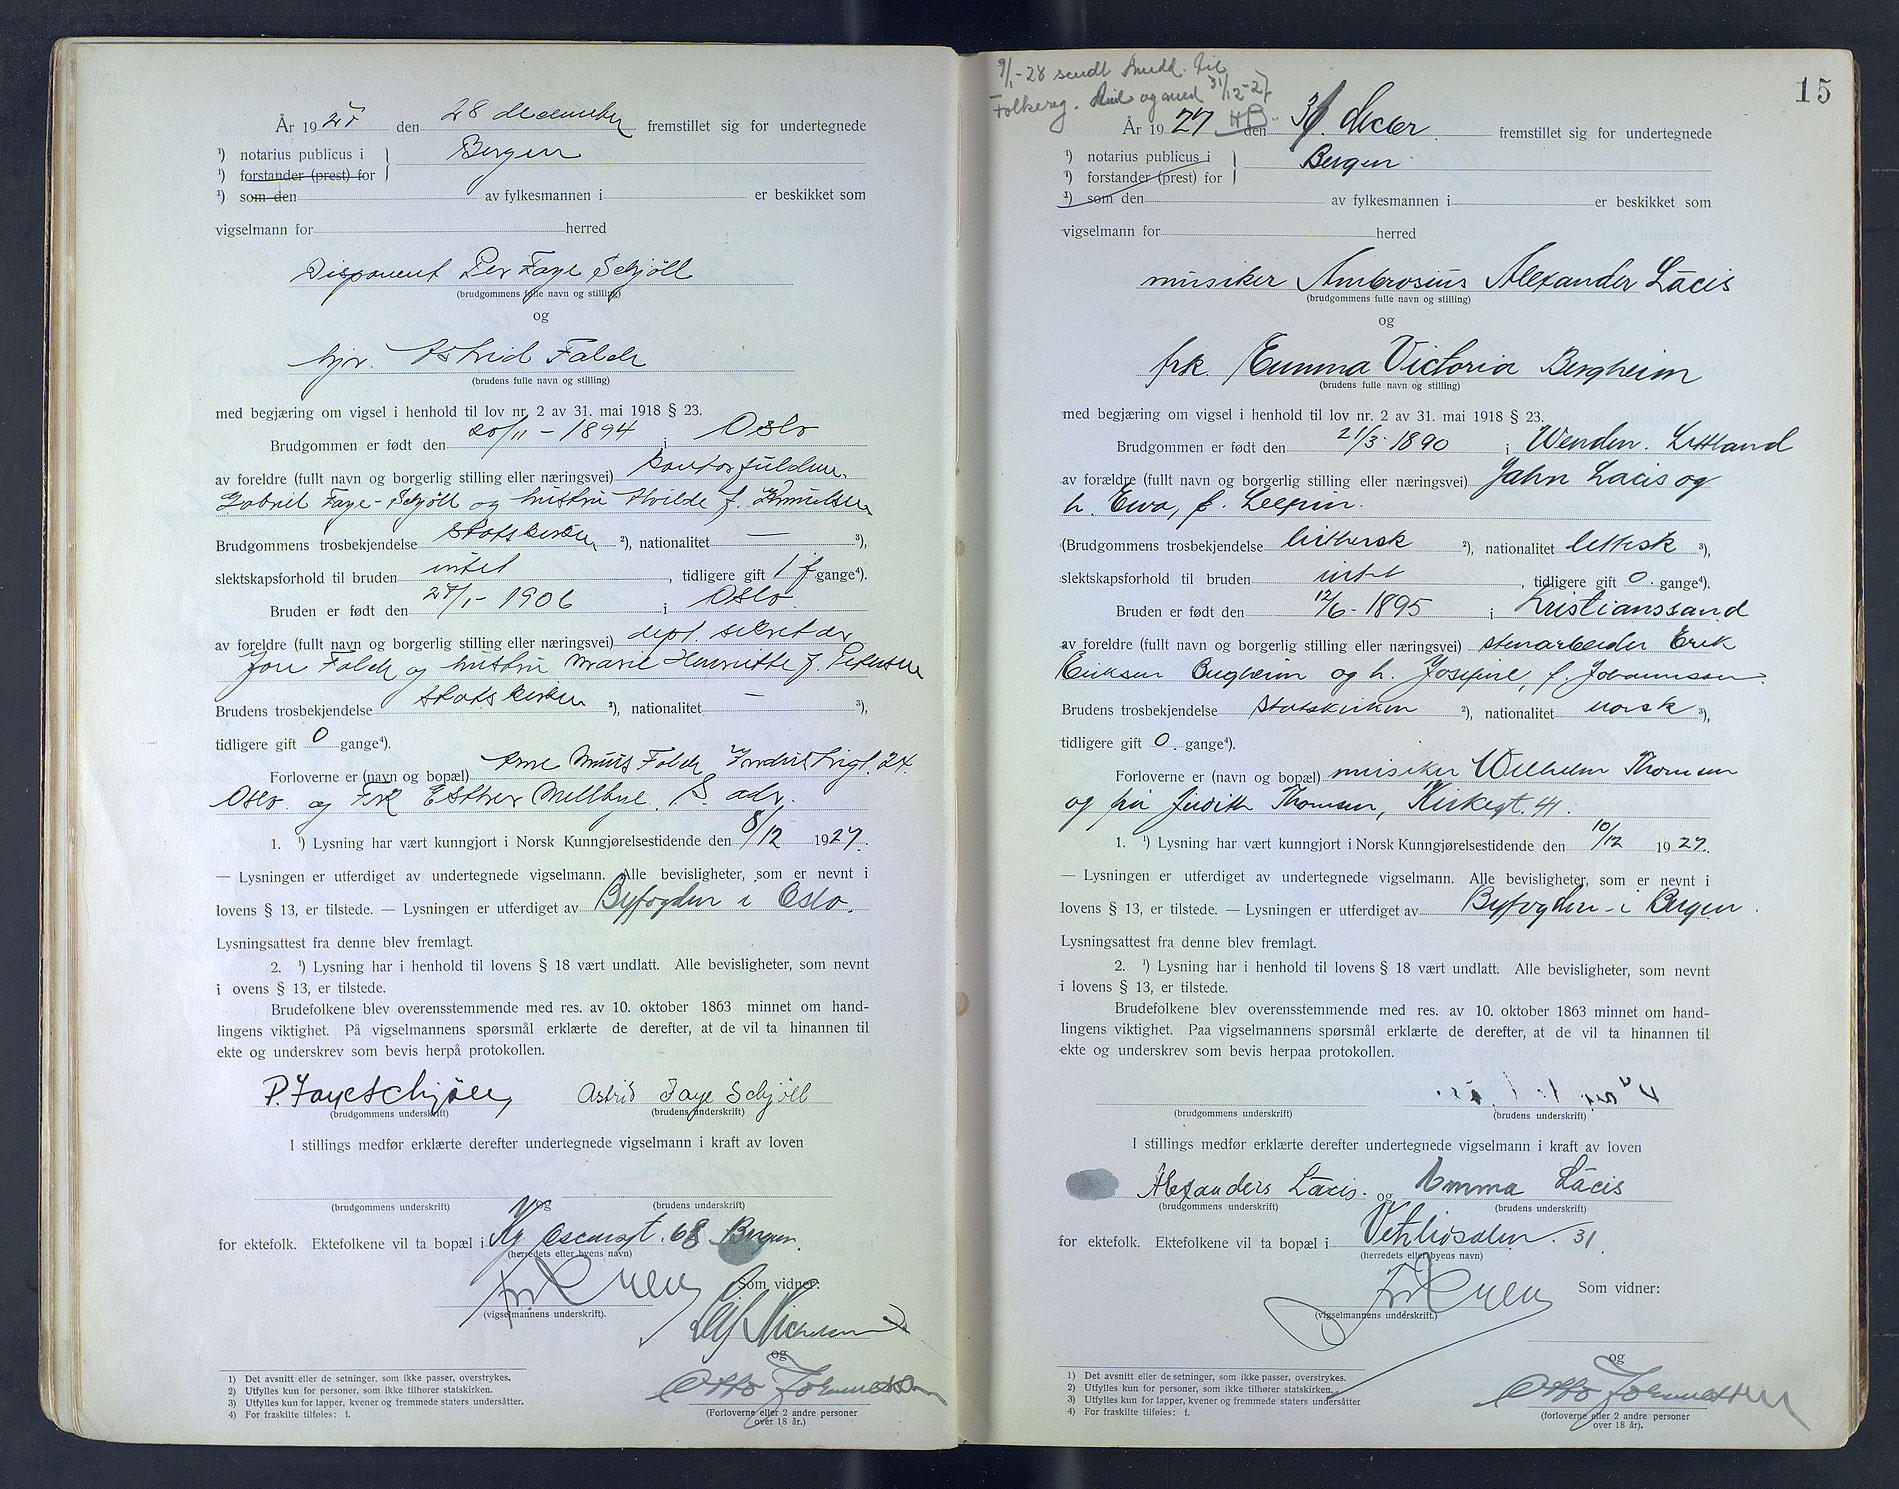 År 1927 den 28 december fremstillet sig for undertegnede
¹) notarius publicus i } Bergen
¹) forstander (prest) for
¹) som den av fylkesmannen i er beskikket som
vigselmann for herred
Disponent Per Faye Schjöll
(brudgommens fulle navn og stilling)
og
frk. Astrid Falch
(brudens fulle navn og stilling)
med begjæring om vigsel i henhold til lov nr. 2 av 31. mai 1918 § 23.
Brudgommen er født den 20/11 - 1894 i Oslo
av foreldre (fullt navn og borgerlig stilling eller næringsvei)
Gabriel Faye-Schjöll og hustru Alvilde f. Knudtsen
Brudgommens trosbekjendelse Statskirken ²), nationalitet — ³),
slektskapsforhold til bruden intet , tidligere gift 1 f gange⁴).
Bruden er født den 27/1 - 1906 i Oslo.
av foreldre (fullt navn og borgerlig stilling eller næringsvei) dept. sekretær
Falch og hustru Marie Henriette f. Petersen
Brudens trosbekjendelse Statskirken ²), nationalitet — ³),
tidligere gift 0 gange⁴).
Forloverne er (navn og bopæl) Falch 24.
Oslo og Frk Esther Mellbye, S. adr.
1. ¹) Lysning har vært kunngjort i Norsk Kunngjørelsestidende den 8/12 1927.
— Lysningen er utferdiget av undertegnede vigselmann. Alle bevisligheter, som er nevnt i
lovens § 13, er tilstede. — Lysningen er utferdiget av Byfogden i Oslo.
Lysningsattest fra denne blev fremlagt.
2. ¹) Lysning har i henhold til lovens § 18 vært undlatt. Alle bevisligheter, som nevnt
i ovens § 13, er tilstede.
Brudefolkene blev overensstemmende med res. av 10. oktober 1863 minnet om hand-
lingens viktighet. På vigselmannens spørsmål erklærte de derefter, at de vil ta hinannen til
ekte og underskrev som bevis herpå protokollen.
P. Faye Schjöll Astrid Faye Schjöll
(brudgommens underskrift) (brudens underskrift)
I stillings medfør erklærte derefter undertegnede vigselmann i kraft av loven
og
(brudgommens underskrift) (brudens underskrift)
for ektefolk. Ektefolkene vil ta bopæl i Kg Oscarsgt. 68 Bergen.
(herredets eller byens navn)
Som vidner:
(vigselmannens underskrift).
Leif Nicholsen
og
Otto Johannessen
1) Det avsnitt eller de setninger, som ikke passer, overstrykes.
2) Utfylles kun for personer, som ikke tilhører statskirken.
3) Utfylles kun for lapper, kvener og fremmede staters undersåtter.
4) For fraskilte tilføies: f.
(Forloverne eller 2 andre personer
over 18 år.)
9/1-28 sendt medd. til
Folkereg. og med 31/12-27
HB.
15
År 1927 den 31. decbr. fremstillet sig for undertegnede
¹) notarius publicus i } Bergen
¹) forstander (prest) for
¹) som den av fylkesmannen i er beskikket som
vigselmann for herred
musiker Ambrosius Alexander Lācis
(brudgommens fulle navn og stilling)
og
frk. Emma Victoria Bergheim
(brudens fulle navn og stilling)
med begjæring om vigsel i henhold til lov nr. 2 av 31. mai 1918 § 23.
Brudgommen er født den 21/3 - 1890 i Wenden. Lettland
av forældre (fullt navn og borgerlig stilling eller næringsvei) Jahn Lacis og
h. Ewa, f. Leepin.
(Brudgommens trosbekjendelse luthersk ²), nationalitet lettisk ³),
slektskapsforhold til bruden intet , tidligere gift 0. gange⁴).
Bruden er født den 12/6 - 1895 i Kristianssand
av foreldre (fullt navn og borgerlig stilling eller næringsvei) stenarbeider Erik
Eriksen Bergheim og h. Josefine, f. Johannsen.
Brudens trosbekjendelse Statskirken ²), nationalitet norsk ³),
tidligere gift 0. gange⁴).
Forloverne er (navn og bopæl) musiker Wilhelm Thomsen
og fru Judith Thomsen, Kirkegt. 41.
1. ¹) Lysning har vært kunngjort i Norsk Kunngjørelsestidende den 10/12 1927.
— Lysningen er utferdiget av undertegnede vigselmann. Alle bevisligheter, som er nevnt i
lovens § 13, er tilstede. — Lysningen er utferdiget av Byfogden i Bergen.
Lysningsattest fra denne blev fremlagt.
2. ¹) Lysning har i henhold til lovens § 18 vært undlatt. Alle bevisligheter, som nevnt
i lovens § 13, er tilstede.
Brudefolkene blev overensstemmende med res. av 10. oktober 1863 minnet om hand-
lingens viktighet. Paa vigselmannens spørsmål erklærte de derefter, at de vil ta hinannen til
ekte og underskrev som bevis herpaa protokollen.
(brudgommens underskrift) (brudens underskrift)
I stillings medfør erklærte derefter undertegnede vigselmann i kraft av loven
Alexanders Lācis. og Emma Lācis
(brudgommens underskrift) (brudens underskrift)
for ektefolk. Ektefolkene vil ta bopæl i Vetrlidsalm. 31
(herredets eller byens navn)
Som vidner:
(vigselmannens underskrift.)
og
Otto Johannessen
1) Det avsnitt eller de setninger, som ikke passer, overstrykes.
2) Utfylles kun for personer, som ikke tilhører statskirken.
3) Utfylles kun for lapper, kvener og fremmede staters undersåtter
4) For fraskilte tilføies: f.
(forloverne eller 2 andre personer
over 18 år).